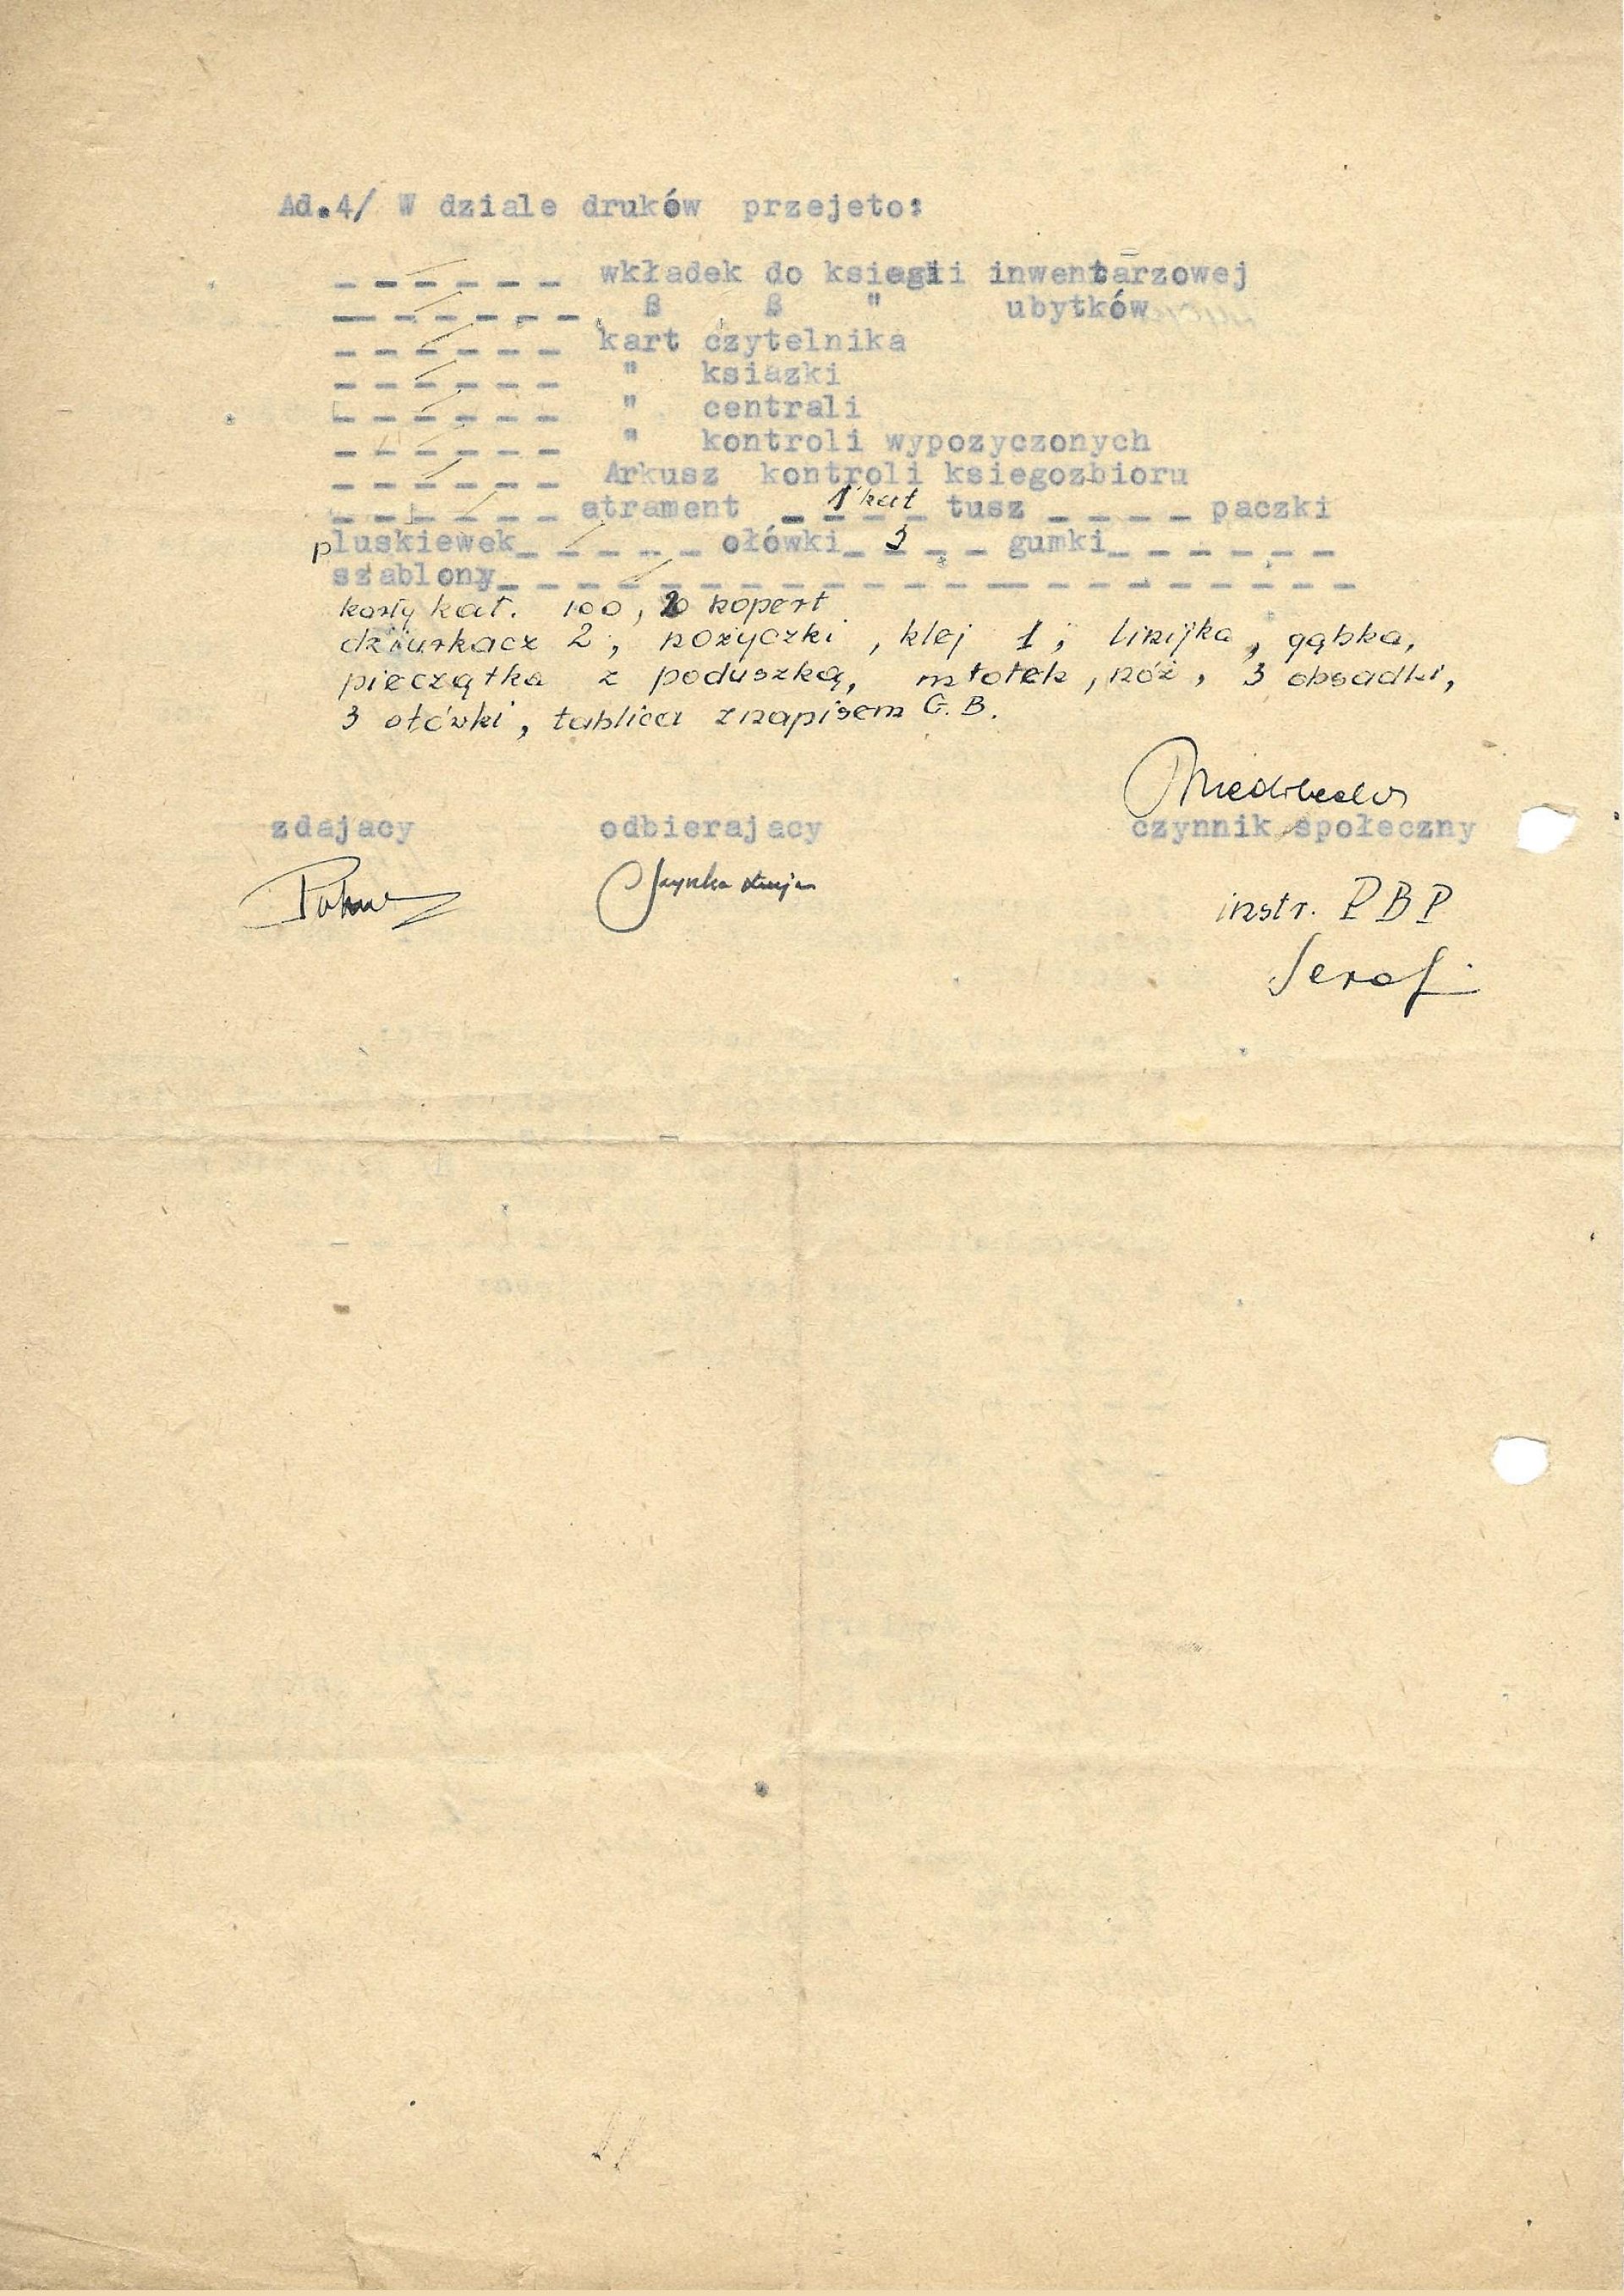 Ad.4/ W dziale druków przejeto:
_ _ _ _ _ _ wkładek do ksiegii inwentarzowej
_ _ _ _ _ _ ß ß " ubytków
_ _ _ _ _ _ kart czytelnika
_ _ _ _ _ _ " ksiazki
_ _ _ _ _ _ " centrali
_ _ _ _ _ _ " kontroli wypozyczonych
_ _ _ _ _ _ Arkusz kontroli ksiegozbioru
_ _ _ _ _ _ atrament _ 1 kał _ tusz _ _ _ _ paczki
pluskiewek_ _ _ _ _ ołówki_ 3 _ _ gumki_ _ _ _ _ _
szablony_ _ _ _ _ _ _ _ _ _ _ _ _ _ _ _ _ _ _ _ _
karty kat. 100, 20 kopert
dziurkacz 2, nożyczki, klej 1, linijka, gąbka,
pieczątka z poduszką, młotek, nóż, 3 obsadki,
3 ołówki, tablica z napisem G.B.
zdajacy odbierajacy czynnik społeczny
instr. PBP
Seraf.